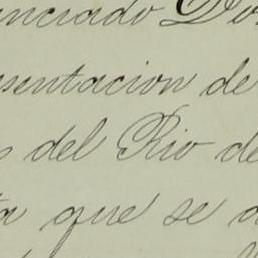 nciado Do
sentacion de
s del Rio de
ta que se d